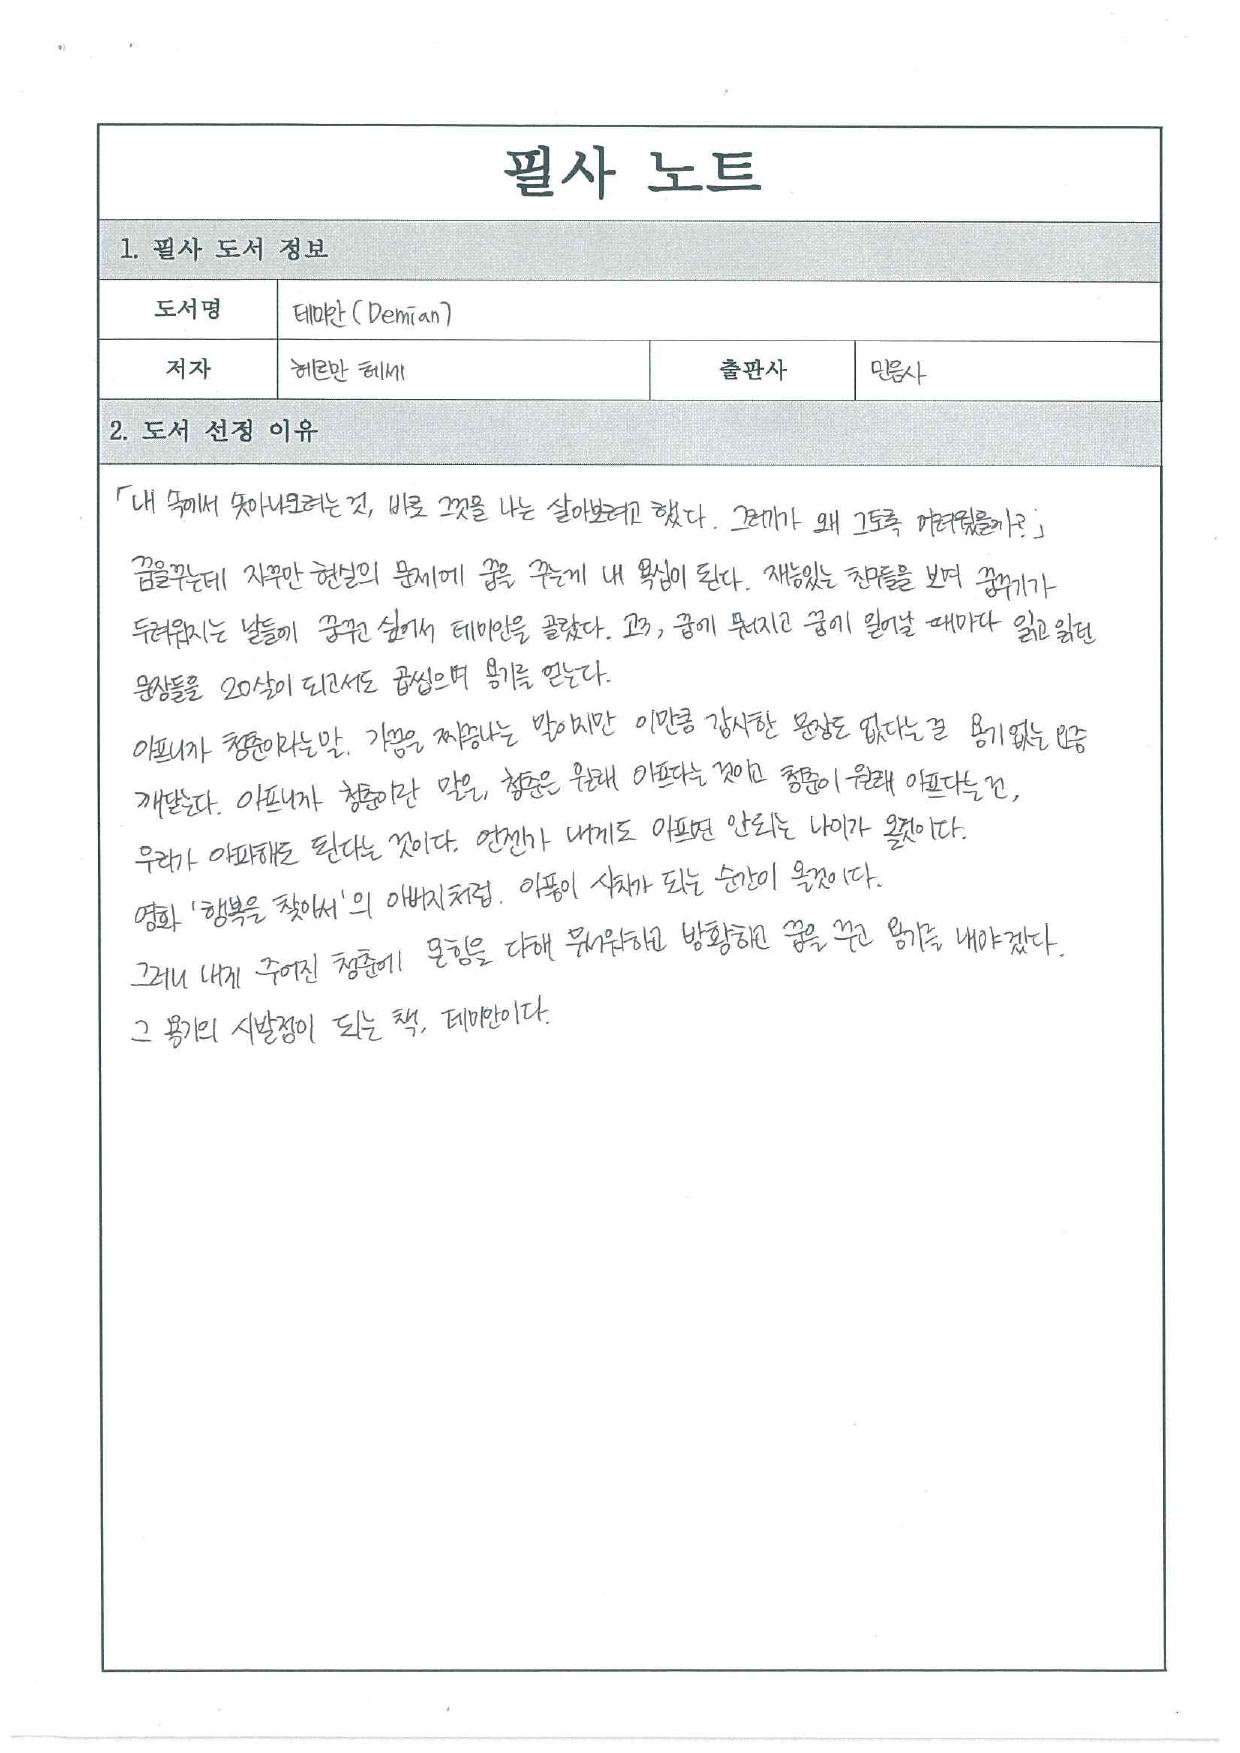 필사 노트
1. 필사 도서 정보
도서명 데미안 (Demian)
저자 헤르만 헤세 출판사 민음사
2. 도서 선정 이유
「내 속에서 솟아나오려는 것, 바로 그것을 나는 살아보려고 했다. 그러기가 왜 그토록 어려웠을까?」
꿈을꾸는데 자꾸만 현실의 문제에 꿈을 꾸는게 내 욕심이 된다. 재능있는 친구들을 보며 꿈꾸기가
두려워지는 날들에 꿈꾸고 싶어서 데미안을 골랐다. 고3, 꿈에 무너지고 꿈에 일어날 때마다 읽고 읽던
문장들을 20살이 되고서도 곱씹으며 용기를 얻는다.
아프니까 청춘이라는말. 가끔은 짜증나는 말이지만 이만큼 감사한 문장도 없다는 걸 용기없는 요즘
깨닫는다. 아프니까 청춘이란 말은, 청춘은 원래 아프다는 것이고 청춘이 원래 아프다는 건,
우리가 아파해도 된다는 것이다. 언젠가 내게도 아프면 안되는 나이가 올것이다.
영화 '행복을 찾아서'의 아버지처럼. 아픔이 사치가 되는 순간이 올것이다.
그러니 내게 주어진 청춘에 온힘을 다해 무서워하고 방황하고 꿈을 꾸고 용기를 내야겠다.
그 용기의 시발점이 되는 책, 데미안이다.